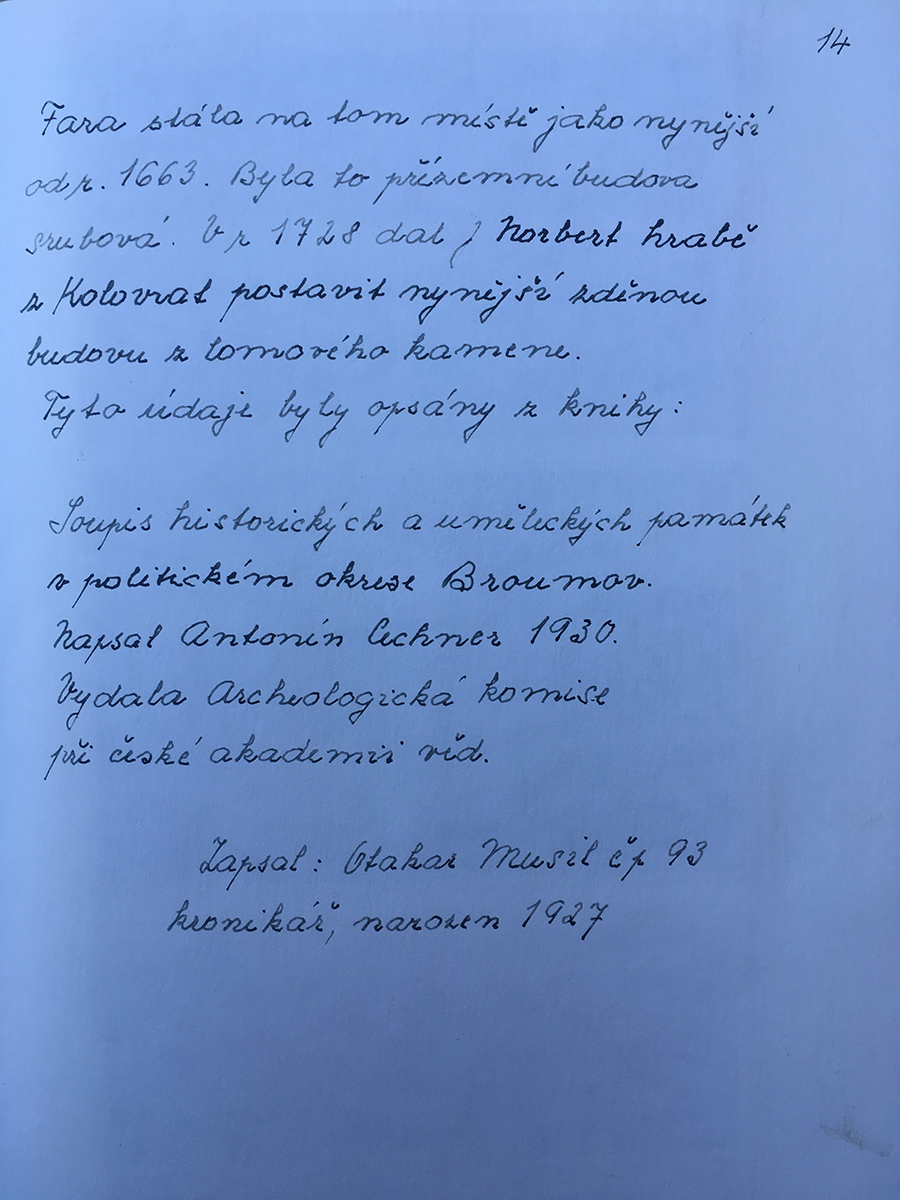 14
Fara stála na tom místě jako nynější
od r. 1663. Byla to přízemní budova
srubová. V r 1728 dal J Norbert hrabě
z Kolovrat postavit nynější zděnou
budovu z lomového kamene.
Tyto údaje byly opsány z knihy:
Soupis historických a uměleckých památek
v politickém okrese Broumov.
Napsal Antonín Cechner 1930.
Vydala Archeologická komise
při české akademii věd.
Zapsal: Otakar Musil čp 93
kronikář, narozen 1927